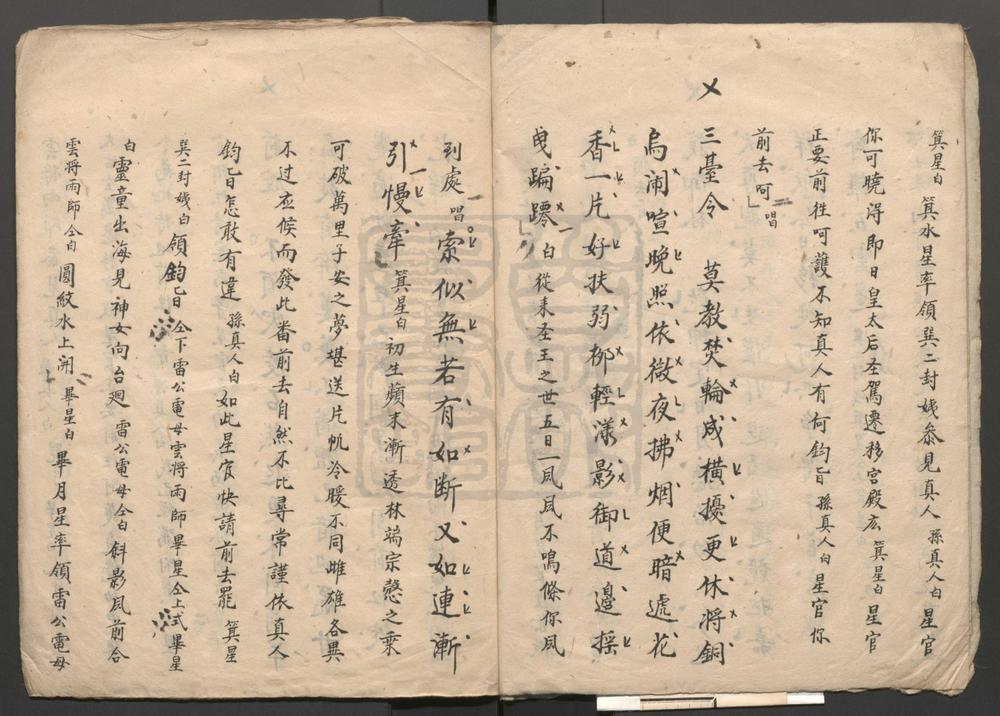 箕星白 箕水星率領巽二封姨叅見真人 孫真人白 星官
你可曉淂即日皇太后圣駕遷移宮殿庅 箕星白 星官
正要前徃呵護不知真人有何鈞旨 孫真人白 星官你
前去呵 唱
三臺令 莫教焚輪成橫擾更休將銅
烏闹喧晚照依微夜拂烟便暗遞花
香一片好扶弱柳輕漾影御道邊揺
曳蹁躚 白 從来圣王之世五日一風風不鳴條你風
到處 唱 索似無若有如断又如連漸
引慢牽 箕星白 初生蘋末漸透林端宗慤之乗
可破萬里子安之夢堪送片帆冷暖不同雌雄各異
不过应候而發此番前去自然不比尋常謹依真人
鈞旨怎敢有違 孫真人白 如此星官快請前去罷 箕星
巽二封姨白 領鈞旨 仝下雷公電母雲將雨師畢星仝上式畢星
白 靈童出海見神女向台廻 雷公電母仝白 斜影風前合
雲将雨師仝白 圓紋水上開 畢星白 畢月星率領雷公電母